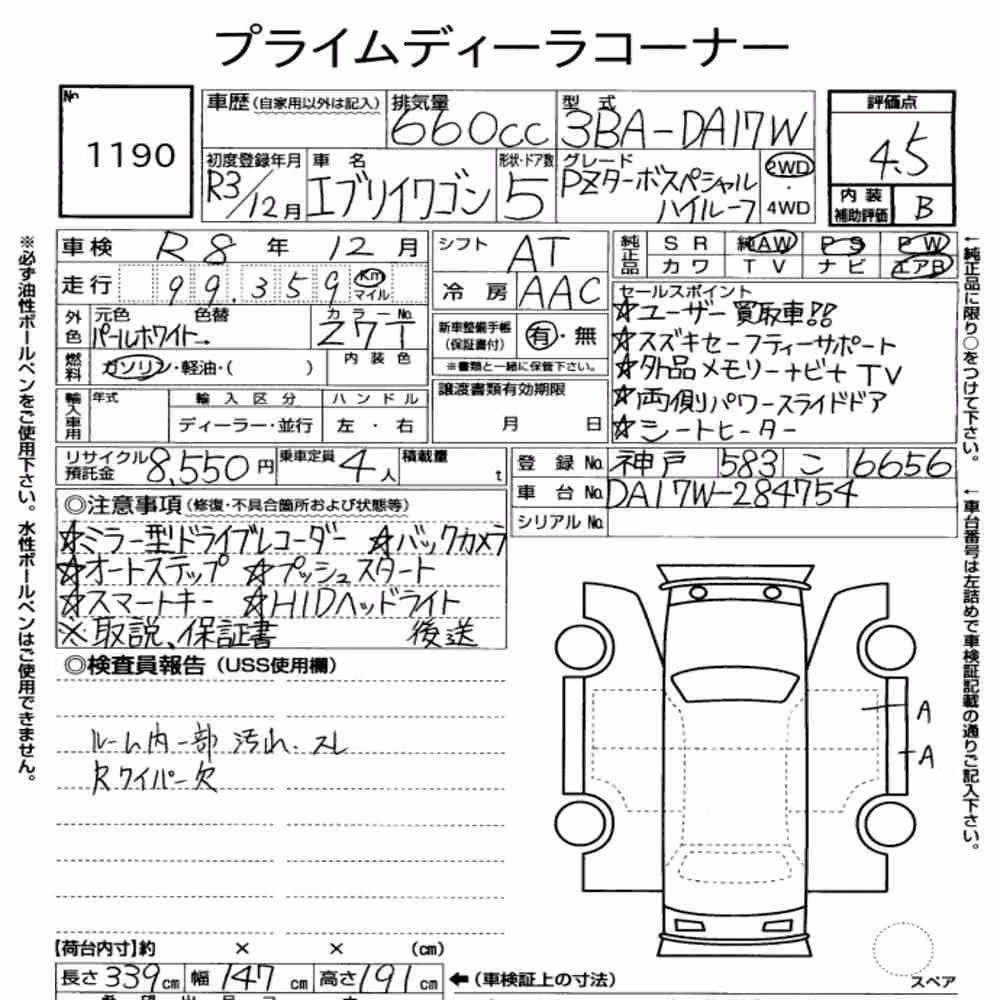 プライムディーラコーナー
№ 1190
車歴(自家用以外は記入) 排気量 660cc 型式 3BA-DA17W
評価点 4.5
初度登録年月 R3/12月 車名 エブリイワゴン 形状・ドア数 5 グレード PZターボスペシャル ハイルーフ 2WD・4WD
内装補助評価 B
車検 R8年 12月
シフト AT
純正品 SR 純AW PS PW
カワ TV ナビ エアB
走行 99,359 Km マイル
冷房 AAC
外色 元色 色替 パールホワイト→ カラーNo. Z7T
新車整備手帳(保証書付) 有・無
※書類と一緒に保管下さい。
燃料 ガソリン・軽油・( ) 内装色
譲渡書類有効期限 月 日
セールスポイント
☆ユーザー買取車!!
☆スズキセーフティーサポート
☆外品メモリーナビ+TV
☆両側パワースライドドア
☆シートヒーター
輸入車用 年式 輸入区分 ハンドル
ディーラー・並行 左・右
リサイクル預託金 8,550円 乗車定員 4人 積載量 t
登録No. 神戸 583 こ 6656
車台No. DA17W-284754
シリアルNo.
◎注意事項(修復・不具合箇所および状態等)
☆ミラー型ドライブレコーダー ☆バックカメラ
☆オートステップ ☆プッシュスタート
☆スマートキー ☆HIDヘッドライト
※取説、保証書 後送
◎検査員報告(USS使用欄)
ルーム内一部 汚れ、スレ
Rワイパー欠
A
A
スペア
【荷台内寸】約 × × (cm)
長さ 339cm 幅 147cm 高さ 191cm ←(車検証上の寸法)
※必ず油性ボールペンをご使用下さい。水性ボールペンはご使用できません。
←純正品に限り○をつけて下さい。
←車台番号は左詰めで車検証記載の通りご記入下さい。